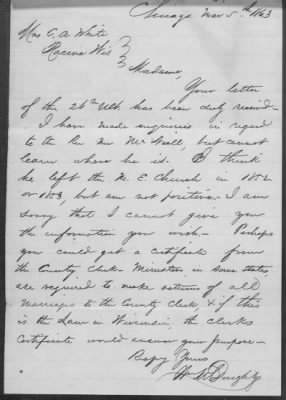 Chicago Mar 5th 1863
Mrs C. A. White
Racine Wis
Madame,
Your letter
of the 26th Ult. has been duly recevd—
I have made enquiries in regard
to the Rev Mr McNeill, but cannot
learn where he is. I think
he left the M. E. Church in 1852
or 1853, but am not positive. I am
sorry that I cannot give you
the information you wish— Perhaps
you could get a certificate from
the County Clerk. Ministers in some states
are required to make return of all
marriages to the County Clerk, & if this
is the Law in Wisconsin, the clerks
Certificate would answer your purpose—
Yours